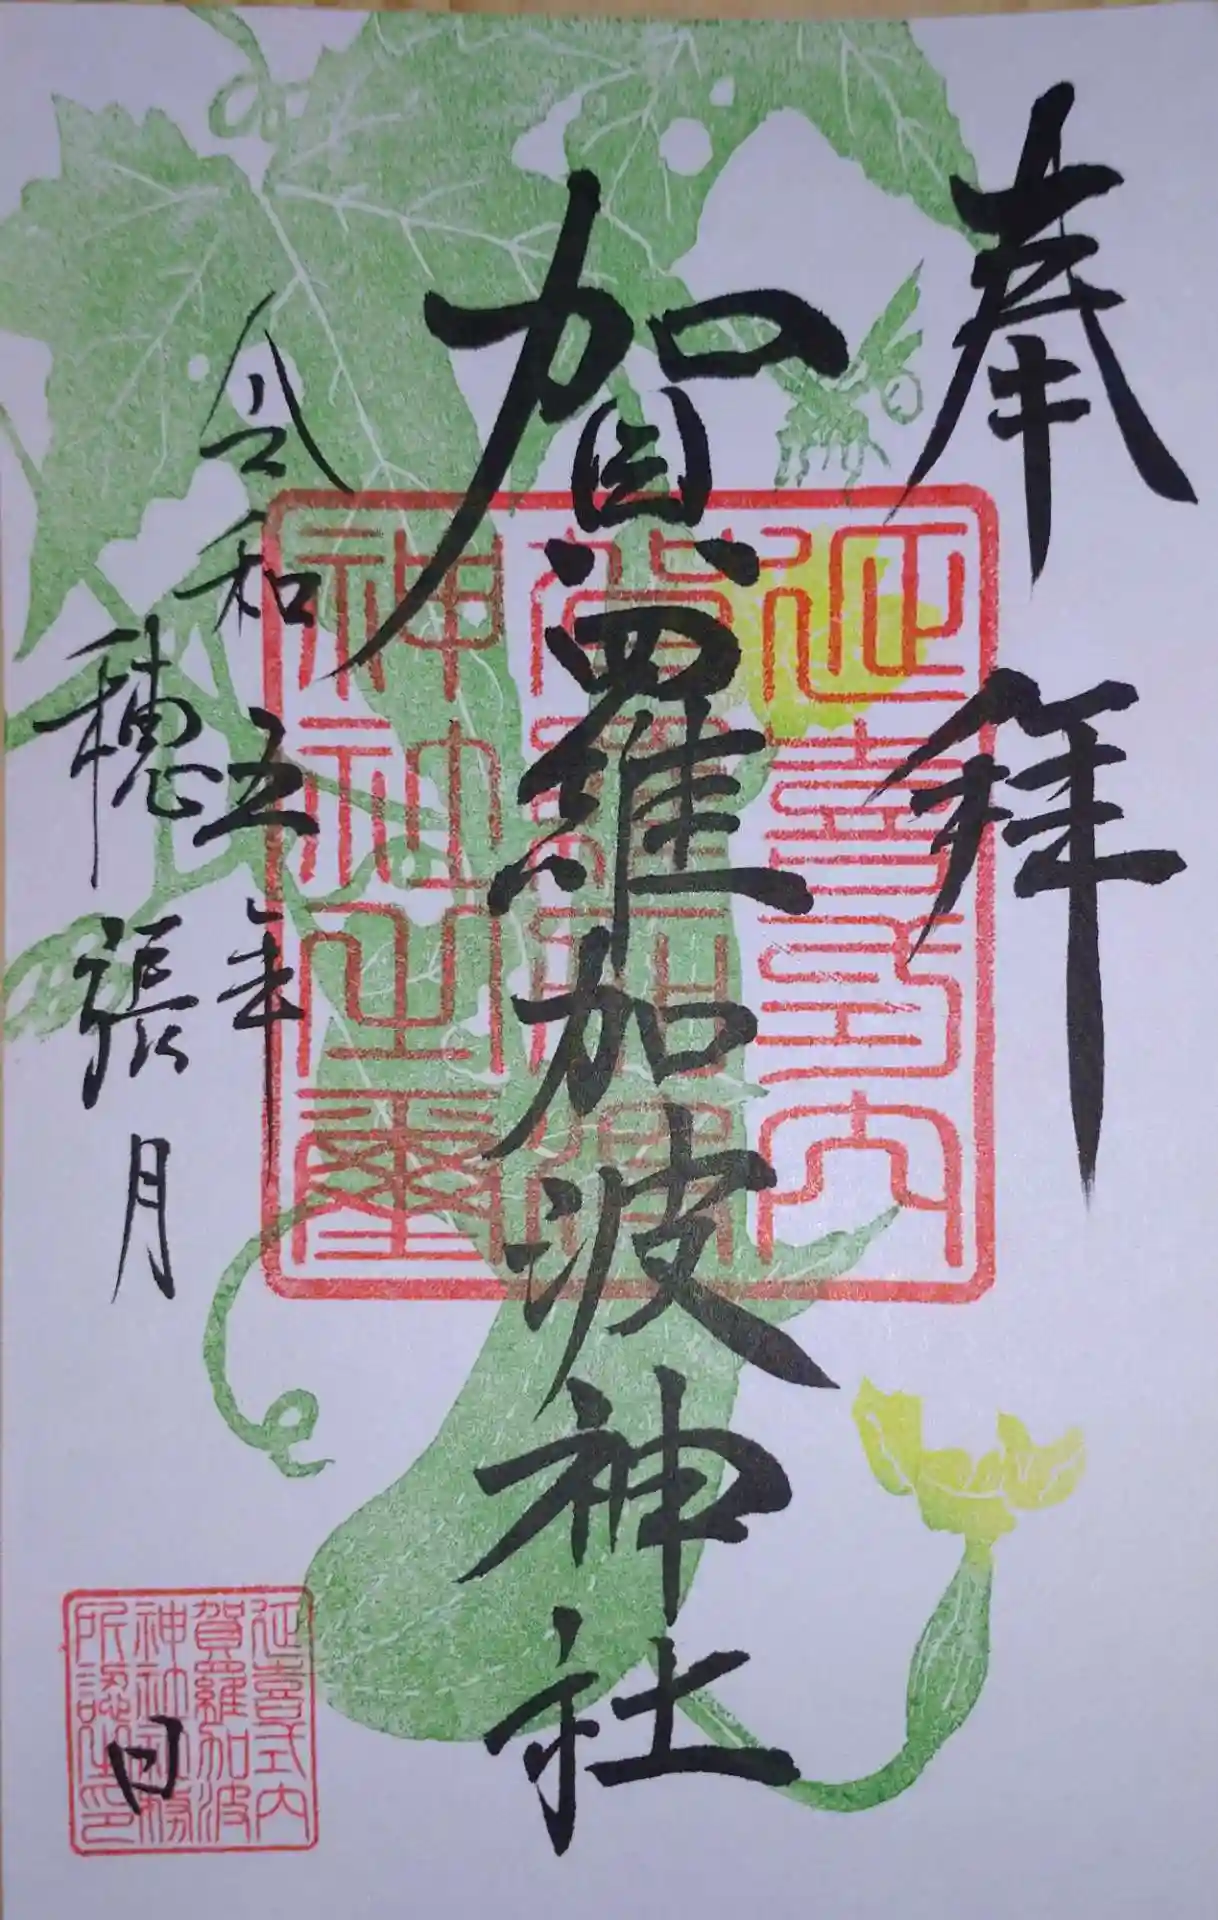 奉拝
賀羅加波神社
令和五年
穂張月
日
延喜式内
賀羅加波
神社之璽
延喜式内
賀羅加波
神社社務
所認之印